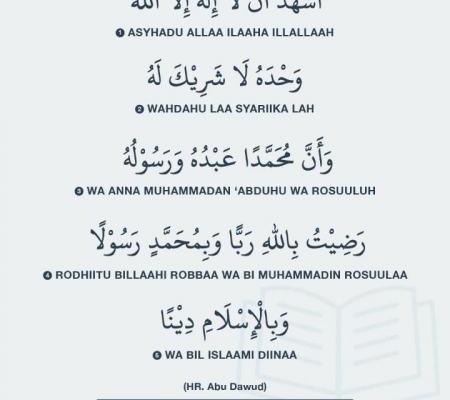 أَشْهَدُ أَنْ لَا إِلٰهَ إِلَّا اللهُ
❶ ASYHADU ALLAA ILAAHA ILLALLAAH
وَحْدَهُ لَا شَرِيْكَ لَهُ
❷ WAHDAHU LAA SYARIIKA LAH
وَأَنَّ مُحَمَّدًا عَبْدُهُ وَرَسُوْلُهُ
❸ WA ANNA MUHAMMADAN ‘ABDUHU WA ROSUULUH
رَضِيْتُ بِاللهِ رَبًّا وَبِمُحَمَّدٍ رَسُوْلًا
❹ RODHIITU BILLAAHI ROBBAA WA BI MUHAMMADIN ROSUULAA
وَبِالْإِسْلَامِ دِيْنًا
❺ WA BIL ISLAAMI DIINAA
(HR. Abu Dawud)